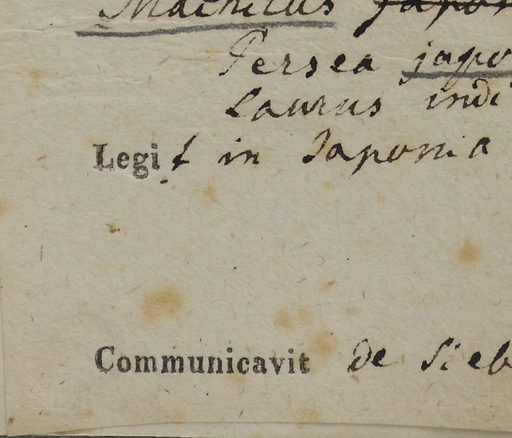 Machilus japon
Persea japo
Laurus indi
Legit in Japonia
Communicavit de Sieb